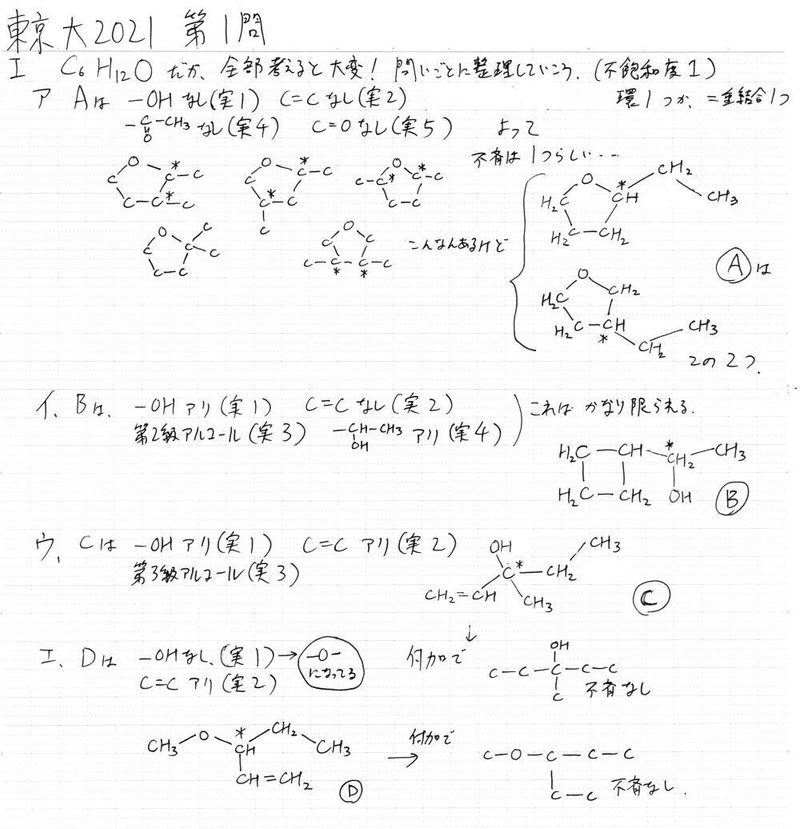 東京大2021 第1問
I C6H12O だが、全部考えると大変! 問いごとに整理していこう。(不飽和度1)
環1つか、二重結合1つ
ア Aは -OHなし(実1) C=Cなし(実2)
-C-CH3なし(実4) C=Oなし(実5) よって
O
不斉は1つらしい…
O C* C C* C C C
O C* C C C C C
O C* C C* C C C
O CH2 CH3
H2C *CH
H2C-CH2
O C C C C C C
O C C C-C*-C*-C
こんなんあるけど
Aは
O
H2C CH2
H2C-CH CH3
* CH2
2の2つ.
イ、Bは、 -OHアリ(実1) C=Cなし(実2)
第2級アルコール(実3) -CH-CH3アリ(実4)
OH
これはかなり限られる.
H2C-CH-*CH2-CH3
H2C-CH2 OH B
ウ、Cは -OHアリ(実1) C=Cアリ(実2)
第3級アルコール(実3)
OH CH3
C* -CH2
CH2=CH CH3 C
エ、Dは -OHなし、(実1)→ -O-になってる
C=Cアリ(実2)
付加で
OH
C-C-C-C-C
C 不斉なし
CH3-O-*CH-CH2-CH3
CH=CH2 D
→ 付加で
C-O-C-C-C
C-C 不斉なし.